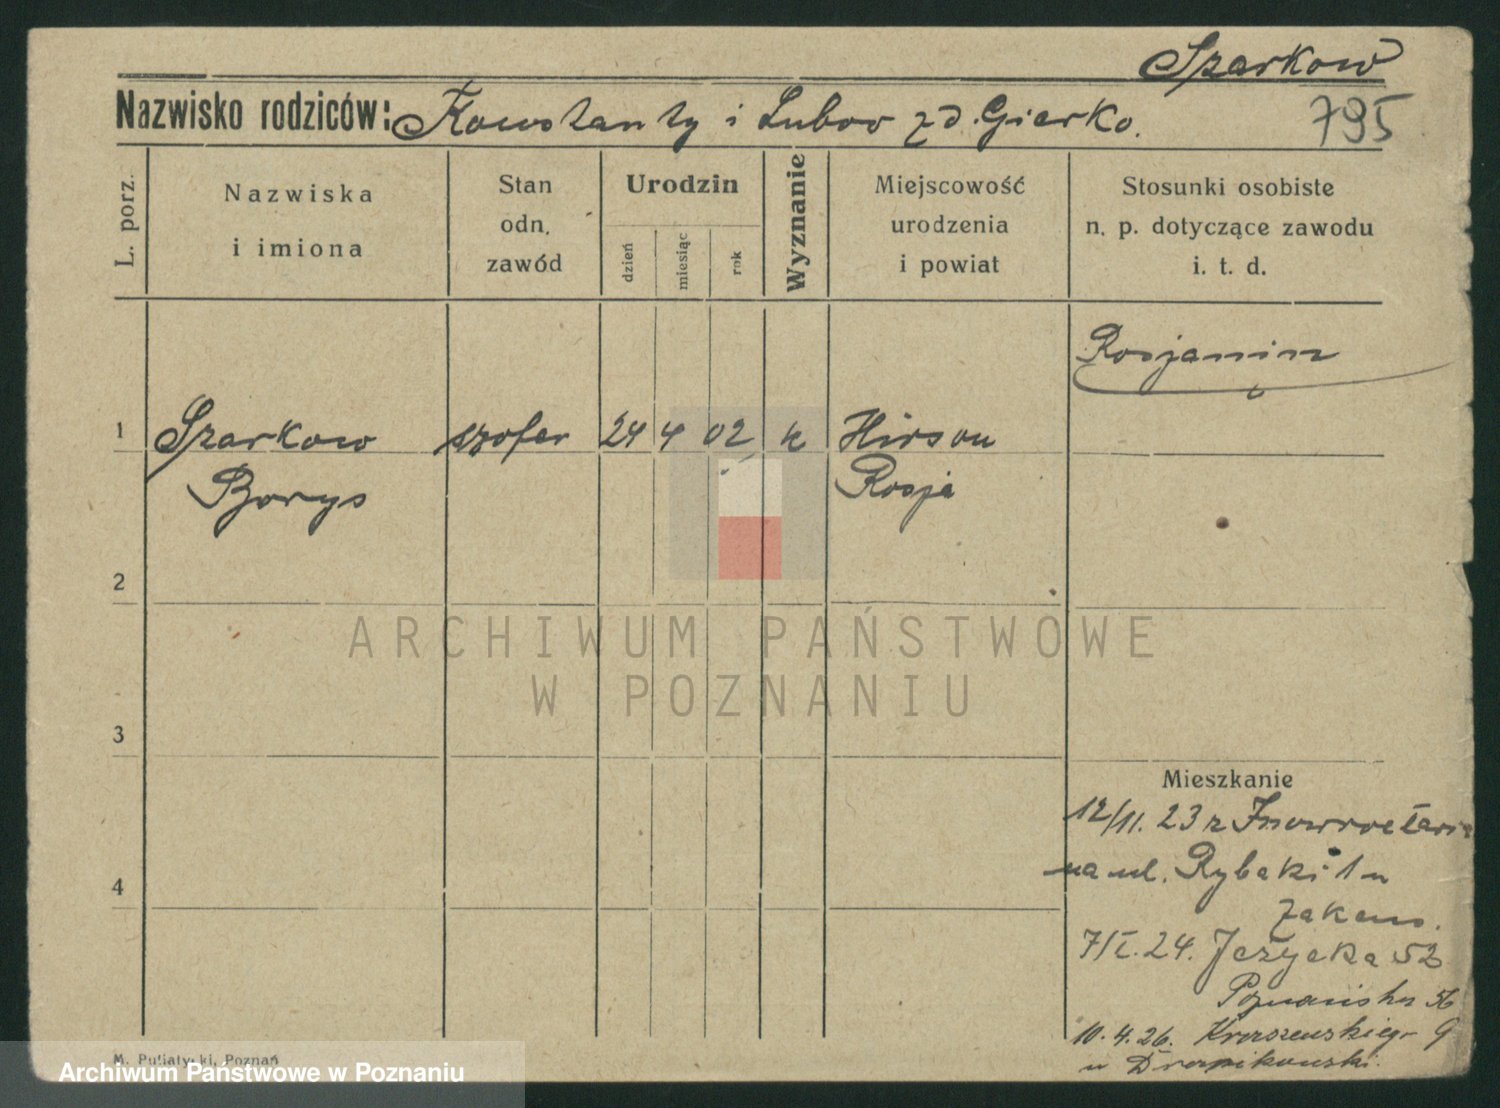 Szarkow
Nazwisko rodziców: Konstanty i Lubov zd. Gierko.
795
L. porz.
Nazwiska
i imiona
Stan
odn.
zawód
Urodzin
dzień
miesiąc
rok
Wyznanie
Miejscowość
urodzenia
i powiat
Stosunki osobiste
n. p. dotyczące zawodu
i. t. d.
Rosjanin
1 Szarkow szofer 24 4 02 k Hirson
Borys Rosja
2
3
4
Mieszkanie
12/11. 23 z
na ul. Rybaki
7/I. 24. Jeżycka 52
Poznańska 56
10. 4. 26. Kraszewskiego 9
u
M. Putiatycki, Poznań
ARCHIWUM PAŃSTWOWE
W POZNANIU
Archiwum Państwowe w Poznaniu